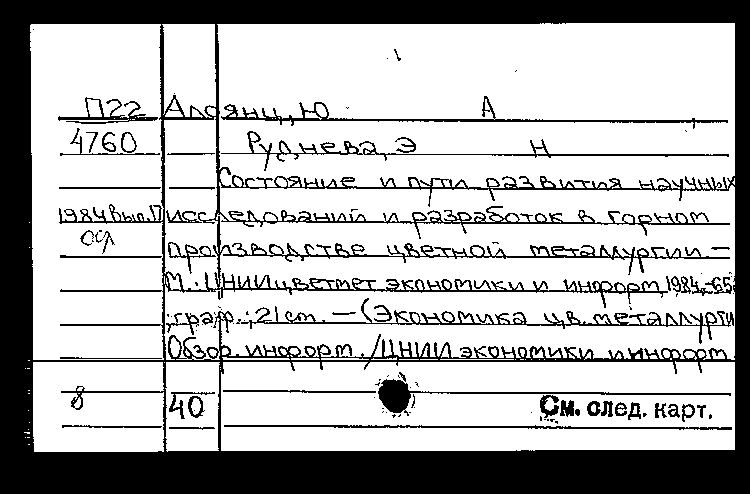 П22 Алоянц, Ю А
4760 Руднева, Э Н
Состояние и пути развития научных
1984 Вып. П исследований и разработок в горном
производстве цветной металлургии. –
М.: ЦНИИцветмет экономики и информ, 1984,-65с
;граф.; 21 cm. – (Экономика цв. металлурги
Обзор. информ. / ЦНИИ экономики и информ
8 40 См. след. карт.